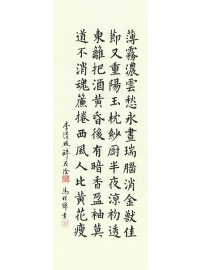 薄霧濃雲愁永晝瑞腦消金獸佳
節又重陽玉枕紗厨半夜涼初透
東籬把酒黃昏後有暗香盈袖莫
道不消魂簾捲西風人比黃花瘦
李清照醉花陰 馮書